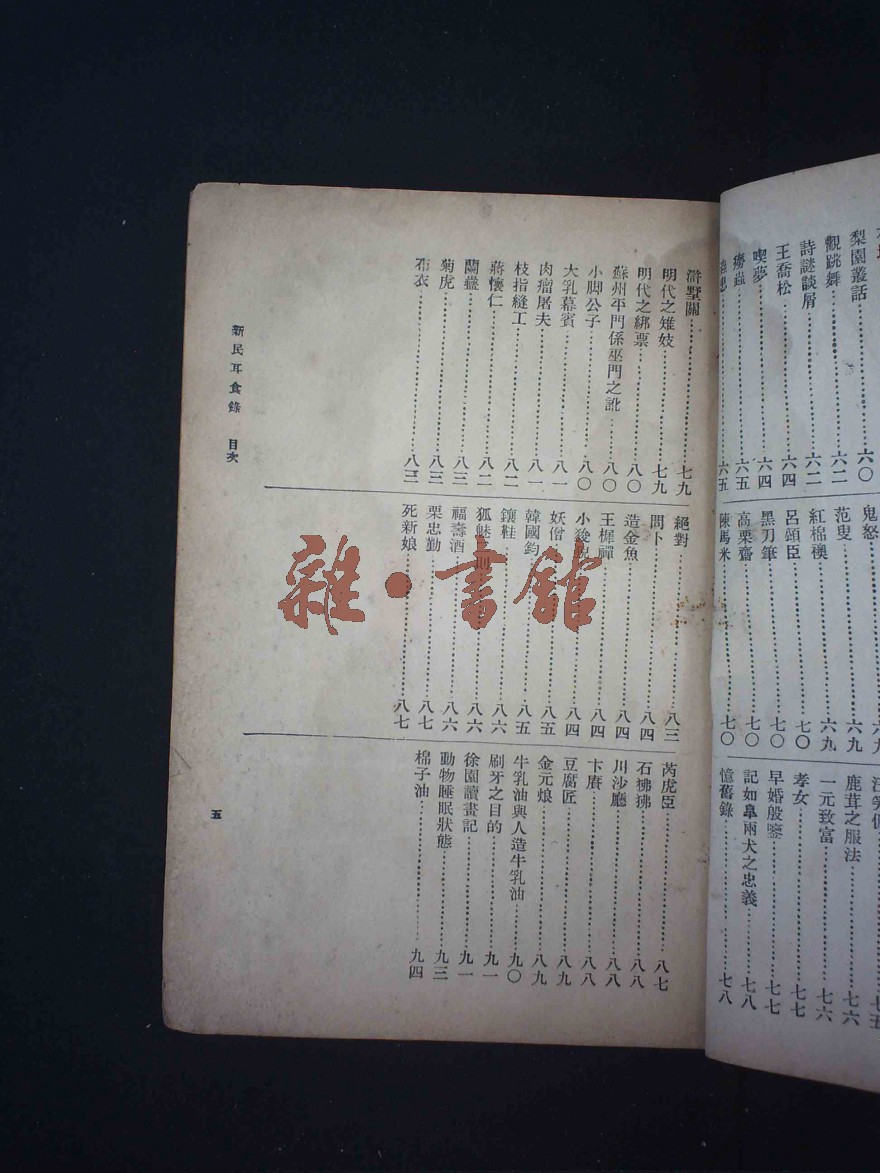 梨園叢話⋯⋯六〇
觀跳舞⋯⋯六二
詩謎談屑⋯⋯六二
王喬松⋯⋯六四
喫夢⋯⋯六四
癆蟲⋯⋯六五
⋯⋯六五
鬼怒⋯⋯六九
范叟⋯⋯六九
紅棉襖⋯⋯六九
呂頭臣⋯⋯七〇
黑刀筆⋯⋯七〇
高栗齋⋯⋯七〇
陳馬米⋯⋯七〇
⋯⋯七五
鹿茸之服法⋯⋯七六
一元致富⋯⋯七六
孝女⋯⋯七七
早婚殷鑒⋯⋯七七
記如皐兩犬之忠義⋯⋯七八
憶舊錄⋯⋯七八
滸墅關⋯⋯七九
明代之雉妓⋯⋯七九
明代之綁票⋯⋯八〇
蘇州平門係巫門之訛⋯⋯八〇
小脚公子⋯⋯八〇
大乳幕賓⋯⋯八一
肉瘤屠夫⋯⋯八一
枝指縫工⋯⋯八二
蔣懷仁⋯⋯八二
蘭蠱⋯⋯八三
菊虎⋯⋯八三
布衣⋯⋯八三
絕對⋯⋯八三
問卜⋯⋯八四
造金魚⋯⋯八四
王樨禪⋯⋯八四
小⋯⋯八四
妖僧⋯⋯八五
韓國鈞⋯⋯八五
鑲鞋⋯⋯八六
狐魅二則⋯⋯八六
福壽酒⋯⋯八六
栗忠勤⋯⋯八七
死新娘⋯⋯八七
芮虎臣⋯⋯八七
石狒狒⋯⋯八八
川沙廳⋯⋯八八
卞賡⋯⋯八八
豆腐匠⋯⋯八九
金元娘⋯⋯八九
牛乳油與人造牛乳油⋯⋯九〇
刷牙之目的⋯⋯九一
徐園讀畫記⋯⋯九一
動物睡眠狀態⋯⋯九三
棉子油⋯⋯九四
新民耳食錄 目次
五
雜·書館